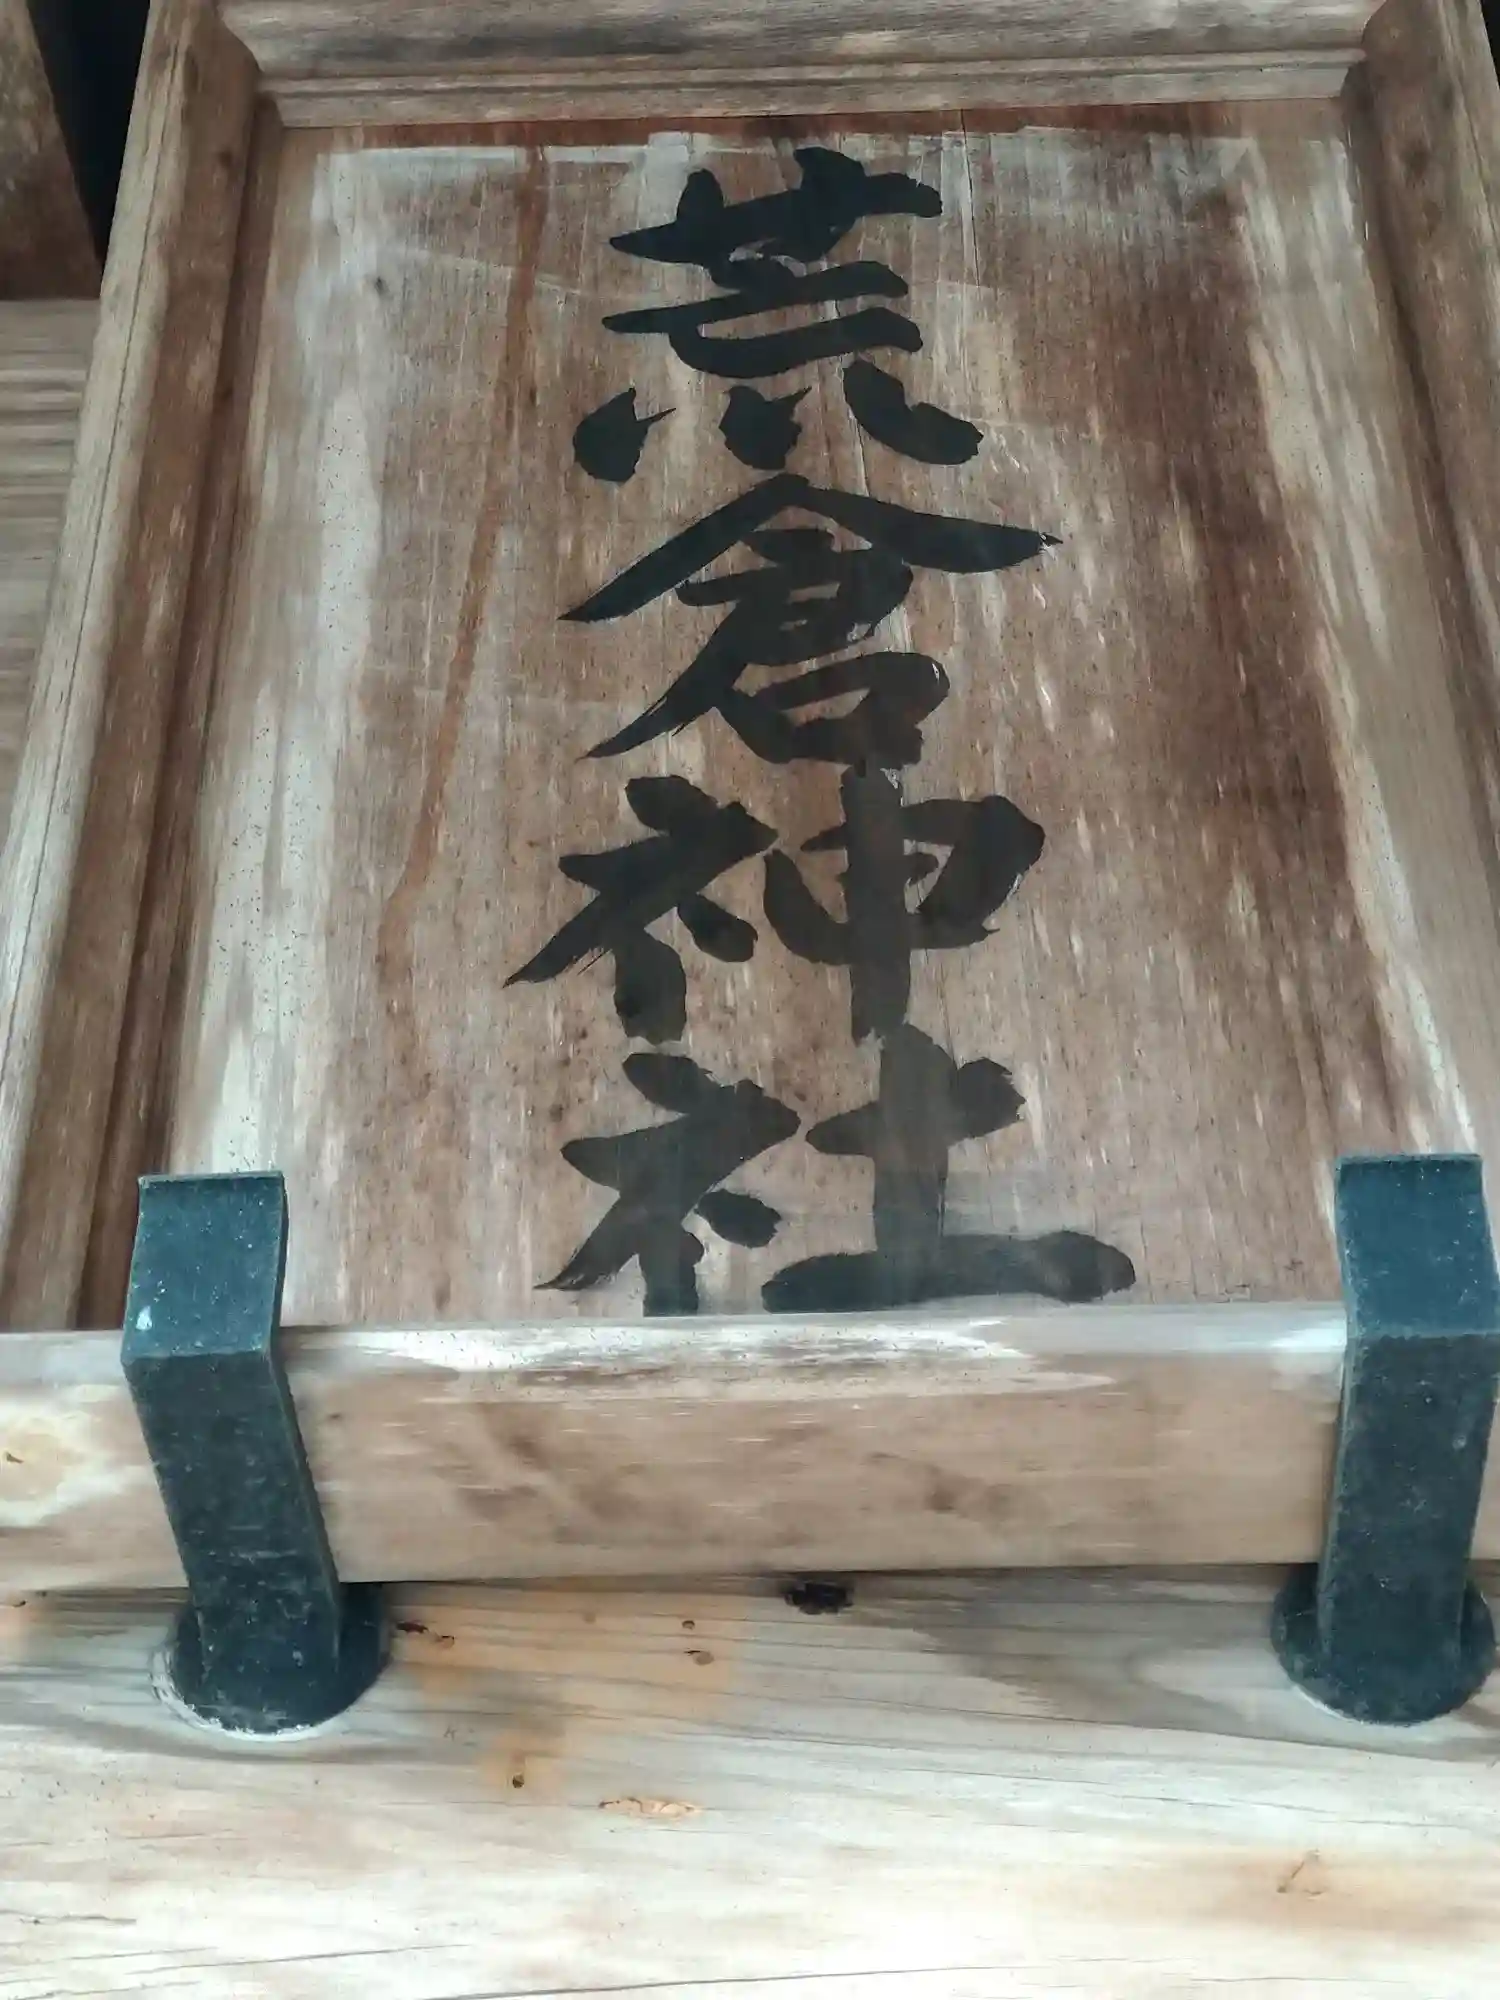 荒倉神社